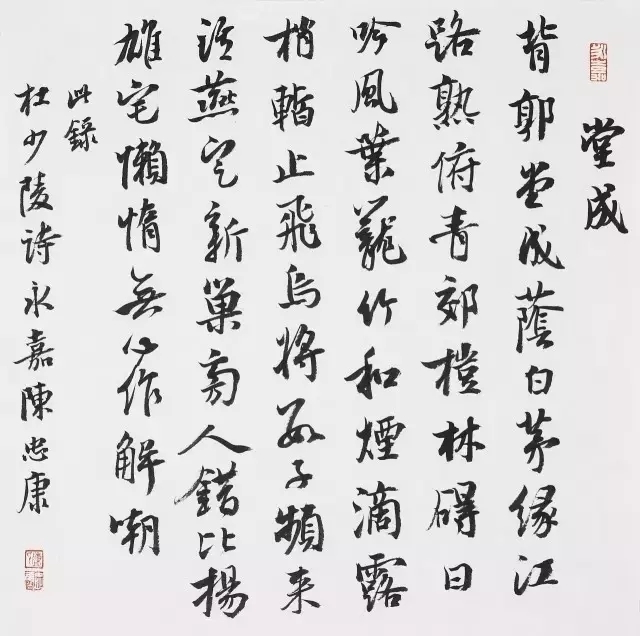 堂成
背郭堂成蔭白茅緣江
路熟俯青郊榿林礙日
吟風葉籠竹和煙滴露
梢暫止飛烏將數子頻来
語燕定新巢旁人錯比揚
雄宅懶惰無心作解嘲
此錄
杜少陵詩永嘉陳忠康